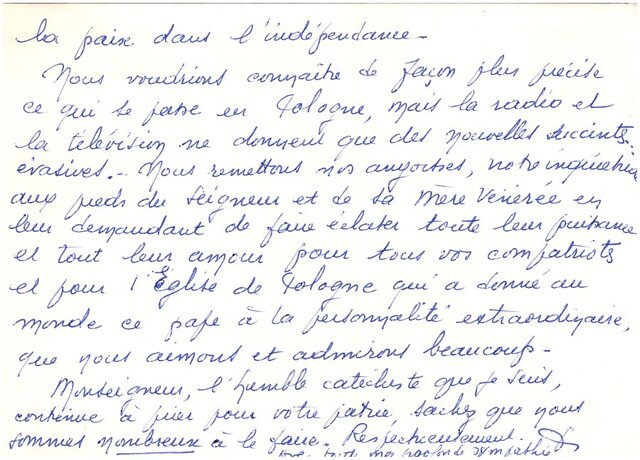 la paix dans l'indépendance -
Nous voudrions connaître de façon plus précise
ce qui se passe en Pologne, mais la radio et
la télévision ne donnent que des nouvelles succintes
évasives. - Nous remettons nos angoisses, notre inquiétude
aux pieds du Seigneur et de Sa Mère Vénérée en
leur demandant de faire éclater toute leur puissance
et tout leur amour pour tous vos compatriotes
et pour l'Eglise de Pologne qui a donné au
monde ce pape à la personnalité extraordinaire,
que nous aimons et admirons beaucoup -
Monseigneur, l'humble catéchiste que je suis,
continue à prier pour votre patrie, sachez que nous
sommes nombreux à le faire. Respectueusement.
avec toute ma profonde sympathie